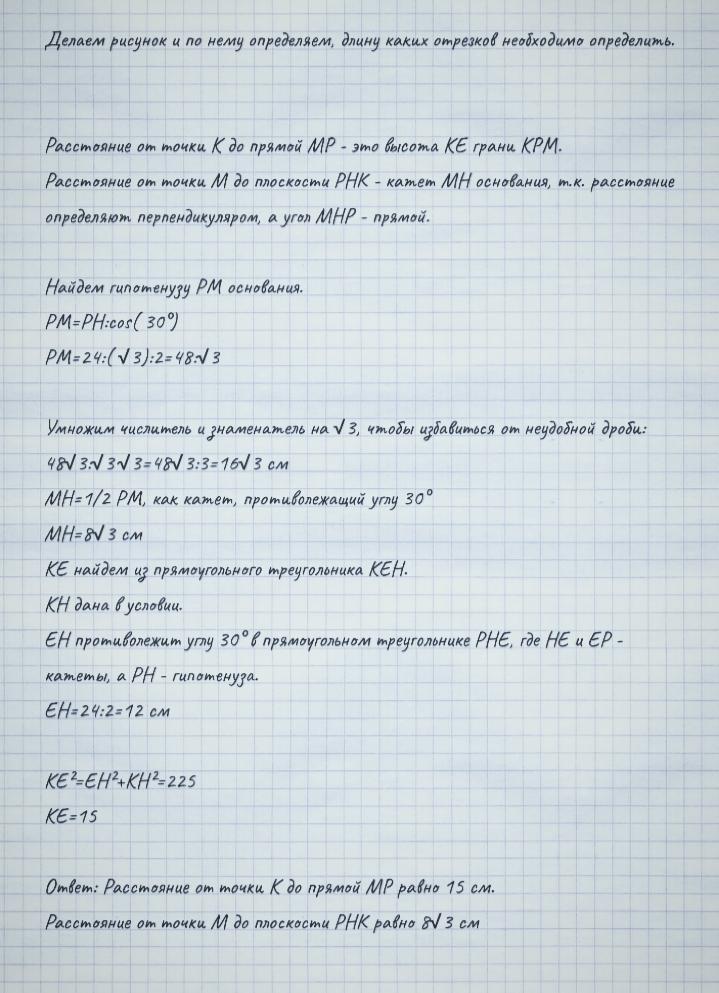 Делаем рисунок и по нему определяем, длину каких отрезков необходимо определить.
Расстояние от точки К до прямой МР - это высота КЕ грани КРМ.
Расстояние от точки М до плоскости РНК - катет МН основания, т.к. расстояние
определяют перпендикуляром, а угол МНР - прямой.
Найдем гипотенузу РМ основания.
РМ=РН:cos( 30°)
РМ=24:(√3):2=48:√3
Умножим числитель и знаменатель на √3, чтобы избавиться от неудобной дроби:
48√3:√3√3=48√3:3=16√3 см
МН=1/2 РМ, как катет, противолежащий углу 30°
МН=8√3 см
КЕ найдем из прямоугольного треугольника КЕН.
КН дана в условии.
ЕН противолежит углу 30° в прямоугольном треугольнике РНЕ, где НЕ и ЕР -
катеты, а РН - гипотенуза.
ЕН=24:2=12 см
КЕ²=ЕН²+КН²=225
КЕ=15
Ответ: Расстояние от точки К до прямой МР равно 15 см.
Расстояние от точки М до плоскости РНК равно 8√3 см